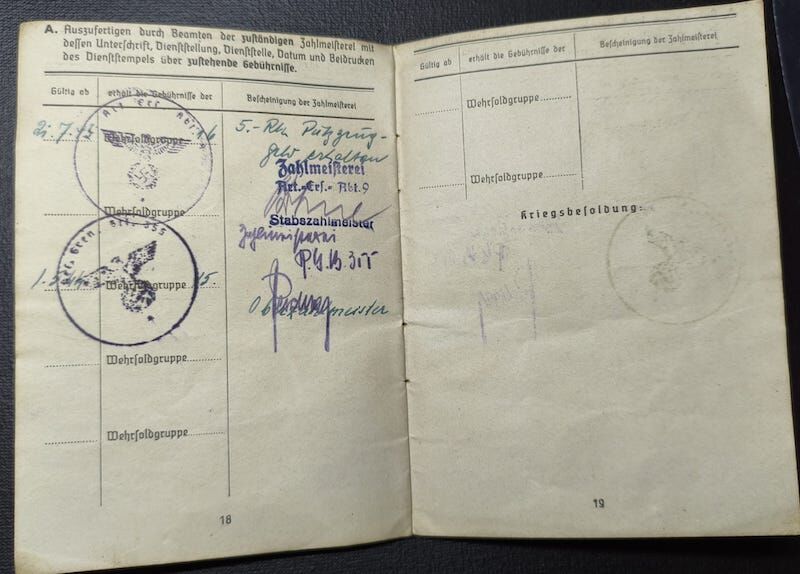 A. Auszufertigen durch Beamten der zuständigen Zahlmeisterei mit
dessen Unterschrift, Dienststellung, Dienststelle, Datum und Beidrucken
des Dienststempels über zustehende Gebührnisse.
Gültig ab
erhält die Gebührnisse der
Bescheinigung der Zahlmeisterei
Art. Ers. Abt.
Wehrsoldgruppe 16
5.- RM Putzzeug-
geld erhalten
Zahlmeisterei
Art.-Ers.- Abt. 9
Wehrsoldgruppe
Stabszahlmeister
Zahlmeisterei
Wehrsoldgruppe 15.
Oberzahlmeister
Wehrsoldgruppe
Wehrsoldgruppe
18
Gültig ab
erhält die Gebührnisse der
Bescheinigung der Zahlmeisterei
Wehrsoldgruppe
Wehrsoldgruppe
Kriegsbesoldung:
19